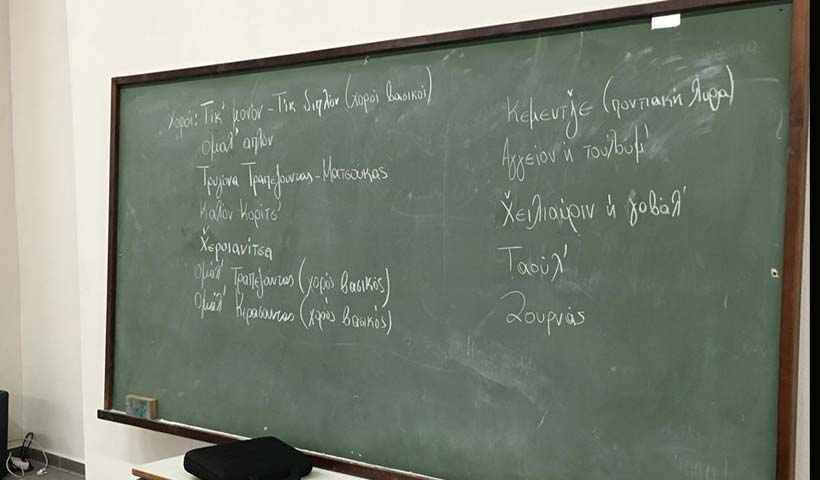 Χοροί: Τικ' μονόν - Τικ διπλόν (χοροί βασικοί)
Ομάλ' απλόν
Τρυγόνα Τραπεζούντας - Ματσούκας
Καλόν Κορίτσ'
Χ̌εροιανίτσα
Ομάλ' Τραπεζούντας (χορός βασικός)
Ομάλ' Κερασούντας (χορός βασικός)
Κεμεντζ̌έ (ποντιακή λύρα)
Αγγείον ή τουλούμ'
Χ̌ειλιαύριν ή γαβάλ'
Ταούλ'
Ζουρνάς